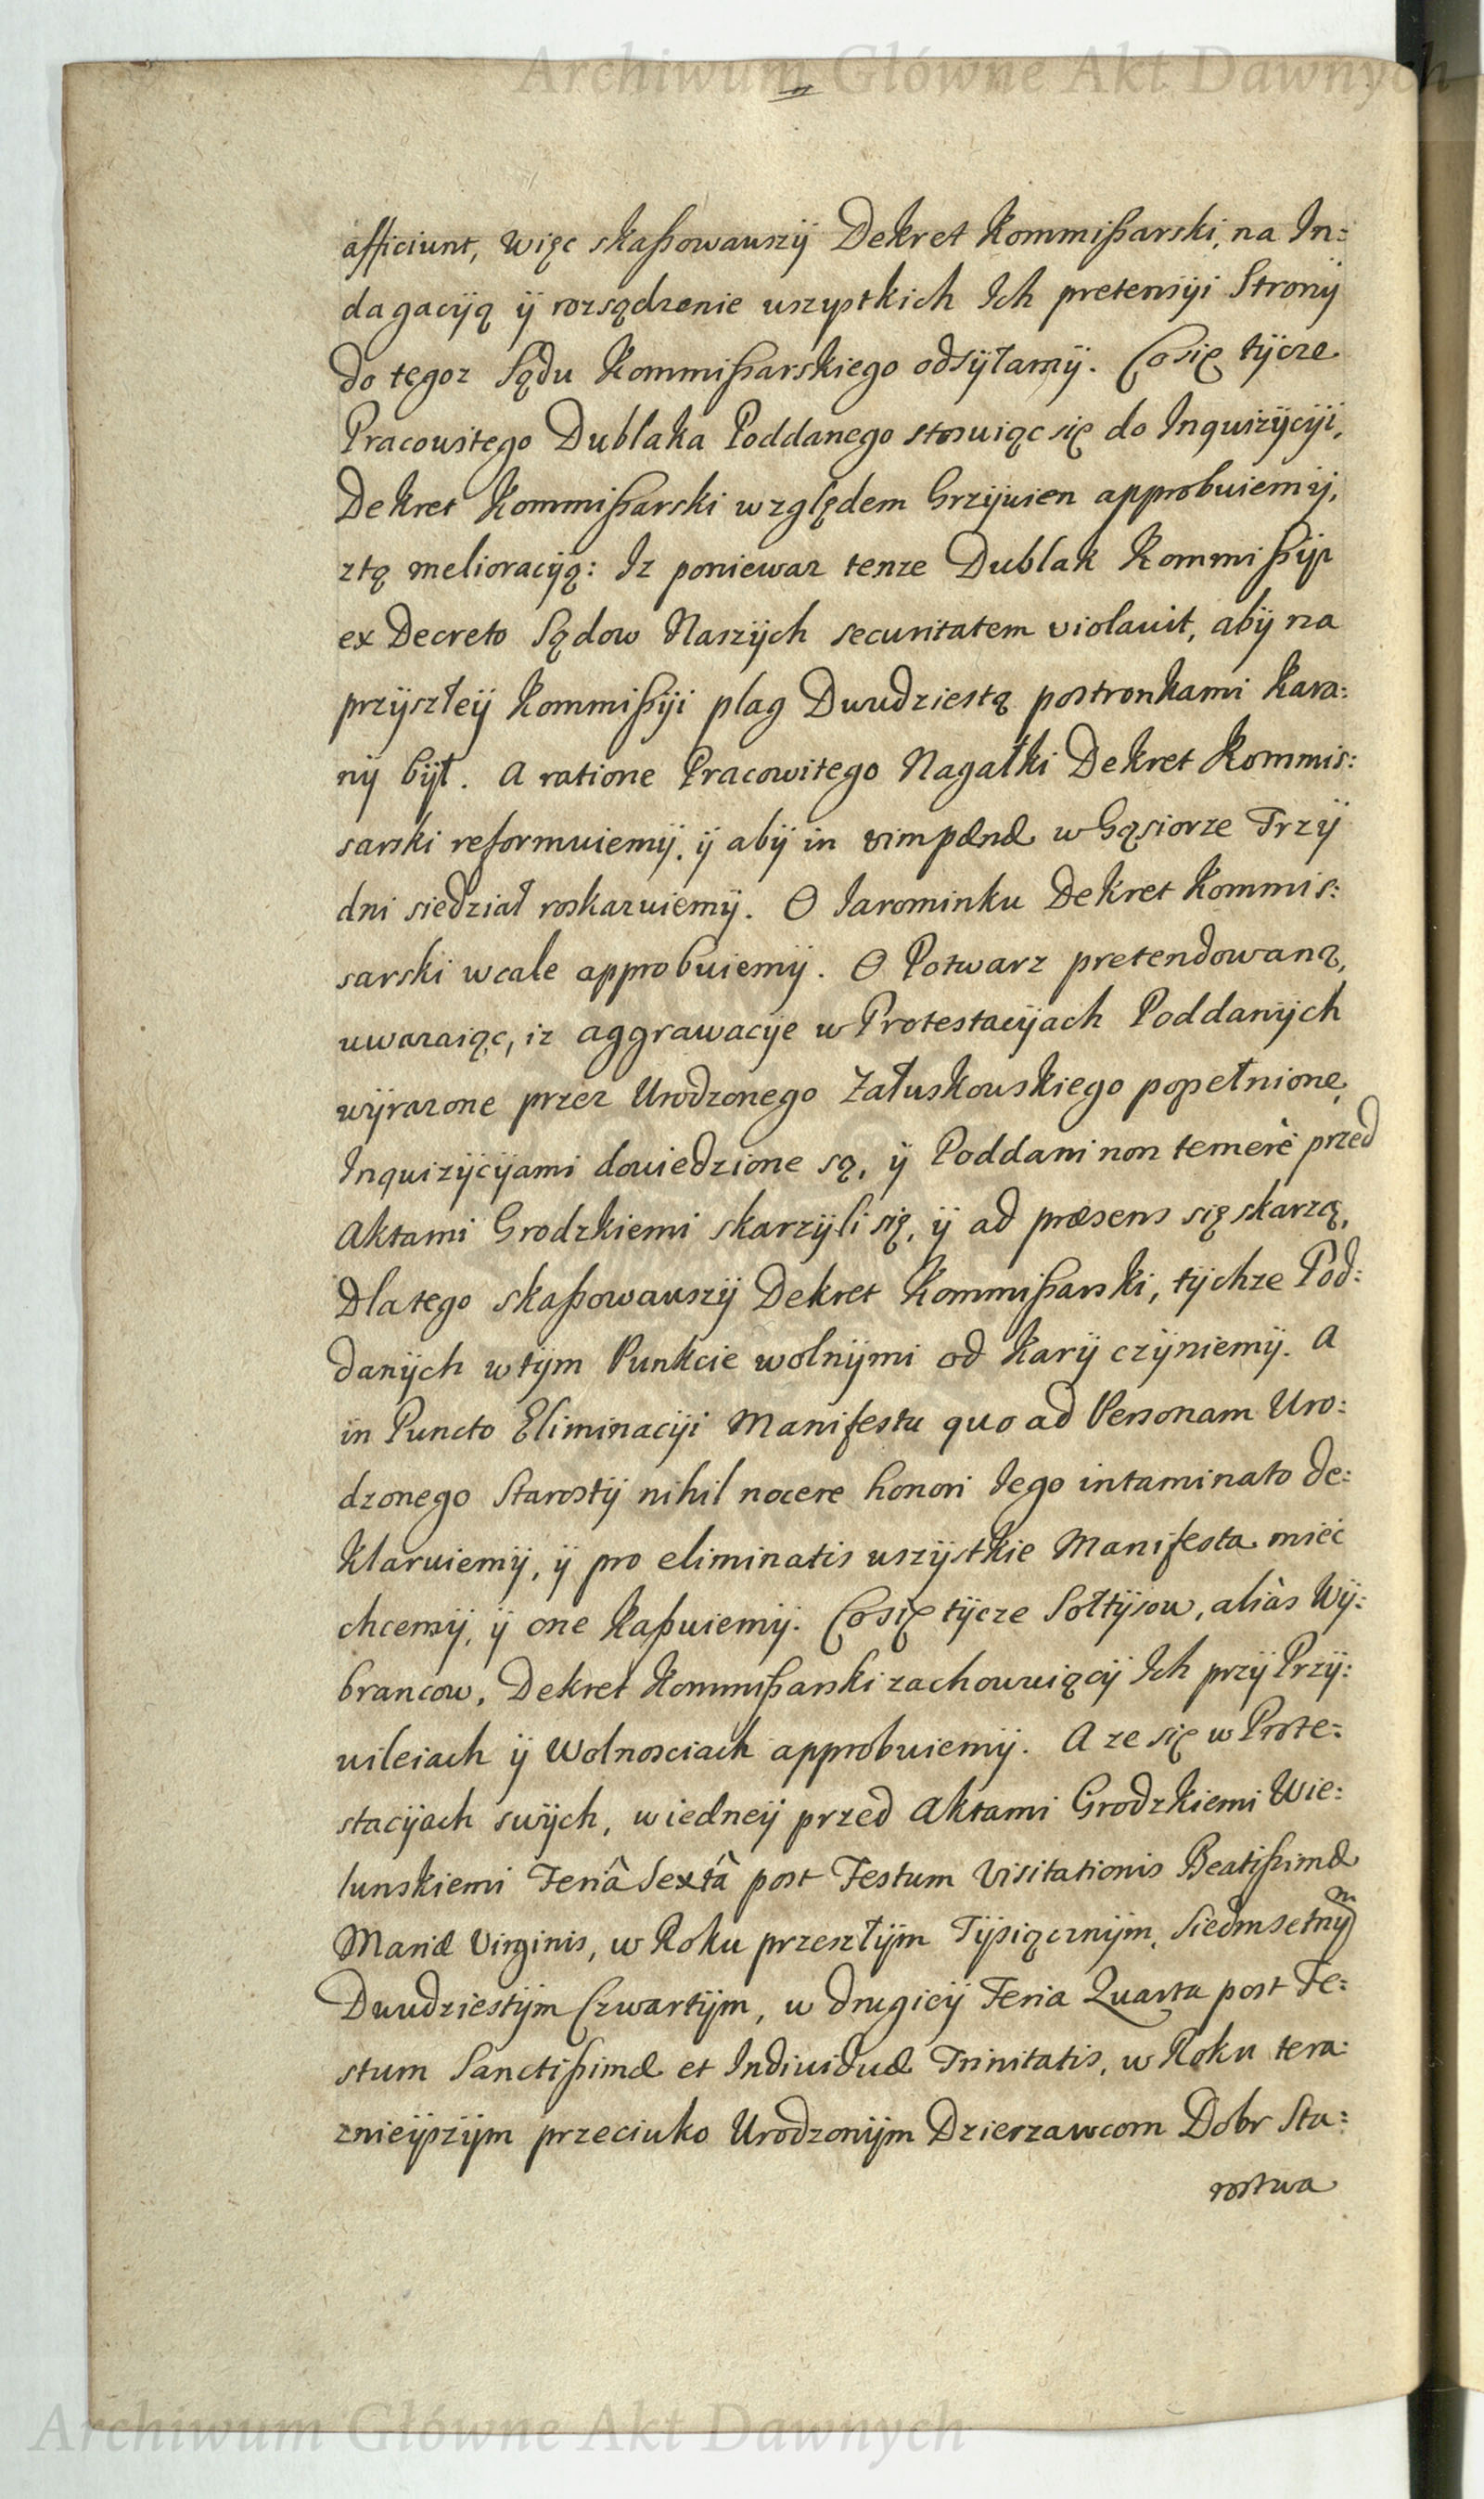 Archiwum Główne Akt Dawnych
afficiunt, Więc skaßowawszÿ Dekret Kommißarski, na In:
dagacÿią ÿ rozsądzenie wszystkich Ich pretensÿi Stronÿ
do tegoz Sądu Kommißarskiego odsÿłamÿ. Co się tÿcze
Pracowitego Dublaka Poddanego stosuiąc się do Inquizÿcÿi,
Dekret Kommißarski względem Grzÿwien approbuiemÿ,
ztą melioracÿią: Iz poniewaz tenze Dublak Kommißÿi
ex Decreto Sądow Naszÿch securitatem violavit, abÿ na
przÿszłeÿ Kommißÿi plag Dwudziestą postronkami kara:
nÿ bÿł. A ratione Pracowitego Nagałki Dekret Kommis:
sarski reformuiemÿ, ÿ abÿ in vim pænæ w Gąsiorze Trzÿ
dni siedział roskazuiemÿ. O Iarominku Dekret Kommis:
sarski wcale approbuiemÿ. O Potwarz pretendowaną,
uwazaiąc, iz aggrawacÿe w Protestacÿach Poddanÿch
wÿrazone przez Urodzonego Załuskowskiego popełnione,
Inquizÿcÿami dowiedzione są, ÿ Poddani non temerè przed
Aktami Grodzkiemi skarzÿli się, ÿ ad præsens się skarzą,
Dlatego skaßowawszÿ Dekret Kommißarski, tÿchze Pod:
danÿch w tÿm Punkcie wolnÿmi od karÿ czÿniemÿ. A
in Puncto Eliminacÿi Manifestu quo ad Personam Uro:
dzonego Starostÿ nihil nocere honori Iego intaminato de:
klaruiemÿ, ÿ pro eliminatis wszÿstkie Manifesta miec
chcemÿ, ÿ one kaßuiemÿ. Co się tÿcze Sołtÿsow, aliàs Wÿ:
brancow, Dekret Kommißarski zachowuiącÿ Ich przÿ Przÿ:
wileiach ÿ Wolnosciach approbuiemÿ. A ze się w Prote:
stacÿach swÿch, w iedneÿ przed Aktami Grodzkiemi Wie:
lunskiemi Feriâ Sextâ post Festum Visitationis Beatißimæ
Mariæ Virginis, w Roku przeszłÿm Tÿsiącznÿm, Siedmsetnÿm
Dwudziestÿm Czwartÿm, w drugieÿ Feria Quarta post Fe:
stum Sanctißimæ et Individuæ Trinitatis, w Roku tera:
znieÿszÿm przeciwko Urodzonÿm Dzierzawcom Dobr Sta:
rostwa
Archiwum Główne Akt Dawnych